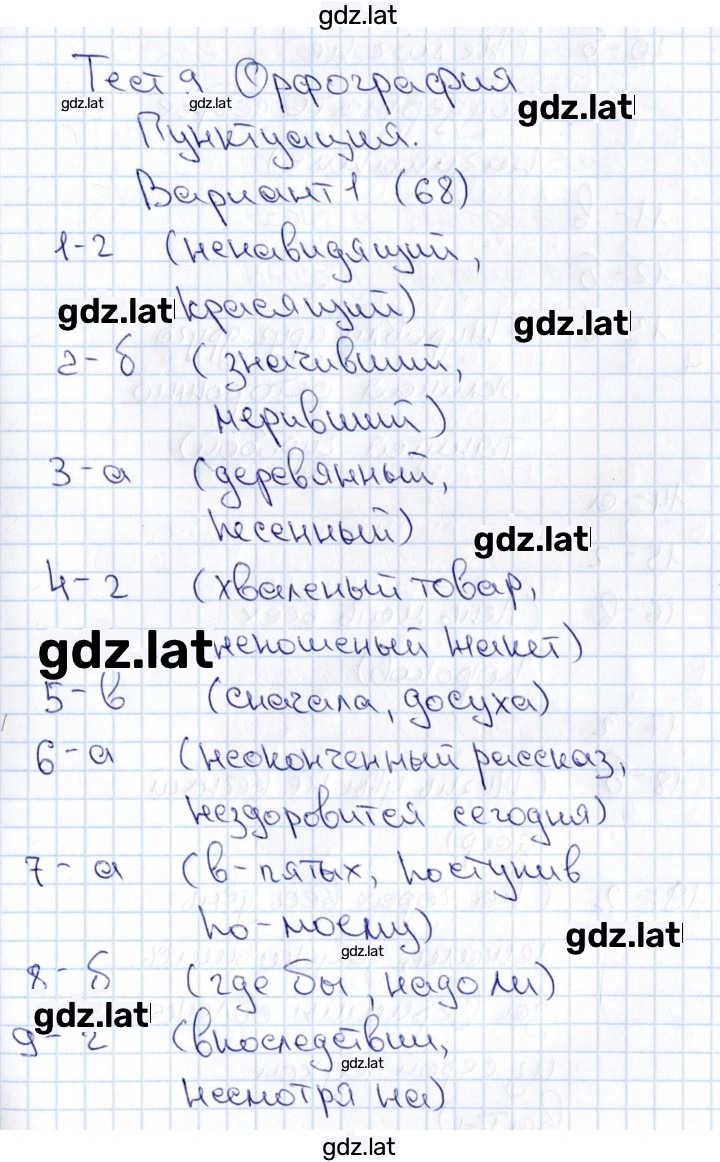 gdz.lat
Тест 9 Орфография
gdz.lat gdz.lat gdz.lat
Пунктуация.
Вариант 1 (68)
1-г (ненавидящий,
gdz.lat красящий)
gdz.lat
2-б (значивший,
меривший)
3-а (деревянный,
песенный)
gdz.lat
4-г (хваленый товар,
gdz.lat неношеный жакет)
5-в (сначала, досуха)
6-а (неоконченный рассказ,
нездоровится сегодня)
7-а (в-пятых, поступив
по-моему)
gdz.lat
gdz.lat
8-б (где бы, надо ли)
gdz.lat
9-г (впоследствии,
gdz.lat
несмотря на)
gdz.lat